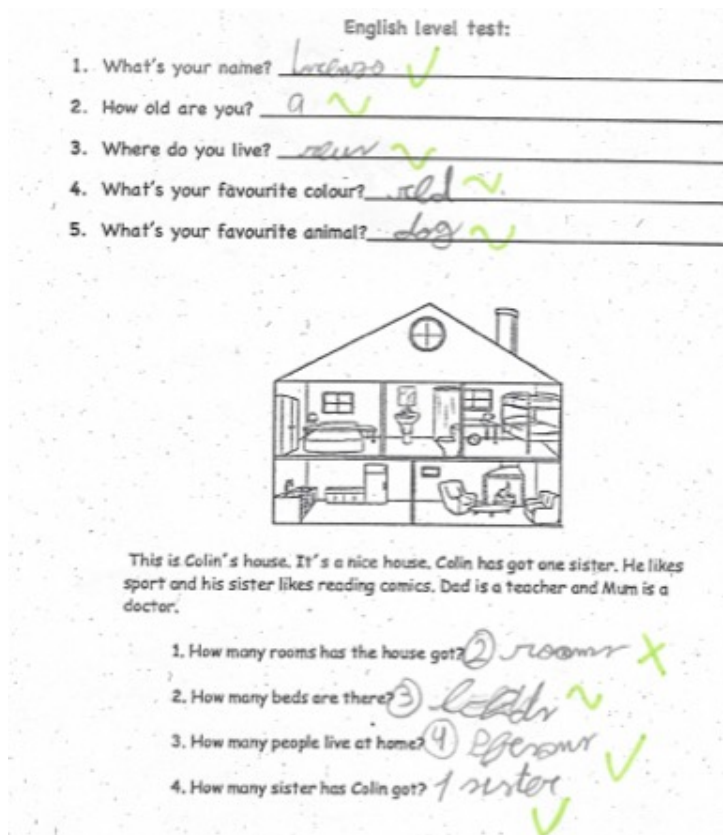 English level test:
1. What's your name? Lorenzo
2. How old are you? 9
3. Where do you live? reus
4. What's your favourite colour? red
5. What's your favourite animal? dog
This is Colin's house. It's a nice house. Colin has got one sister. He likes
sport and his sister likes reading comics. Dad is a teacher and Mum is a
doctor.
1. How many rooms has the house got? 2 rooms
2. How many beds are there? 3
3. How many people live at home? 4
4. How many sister has Colin got? 1 sister